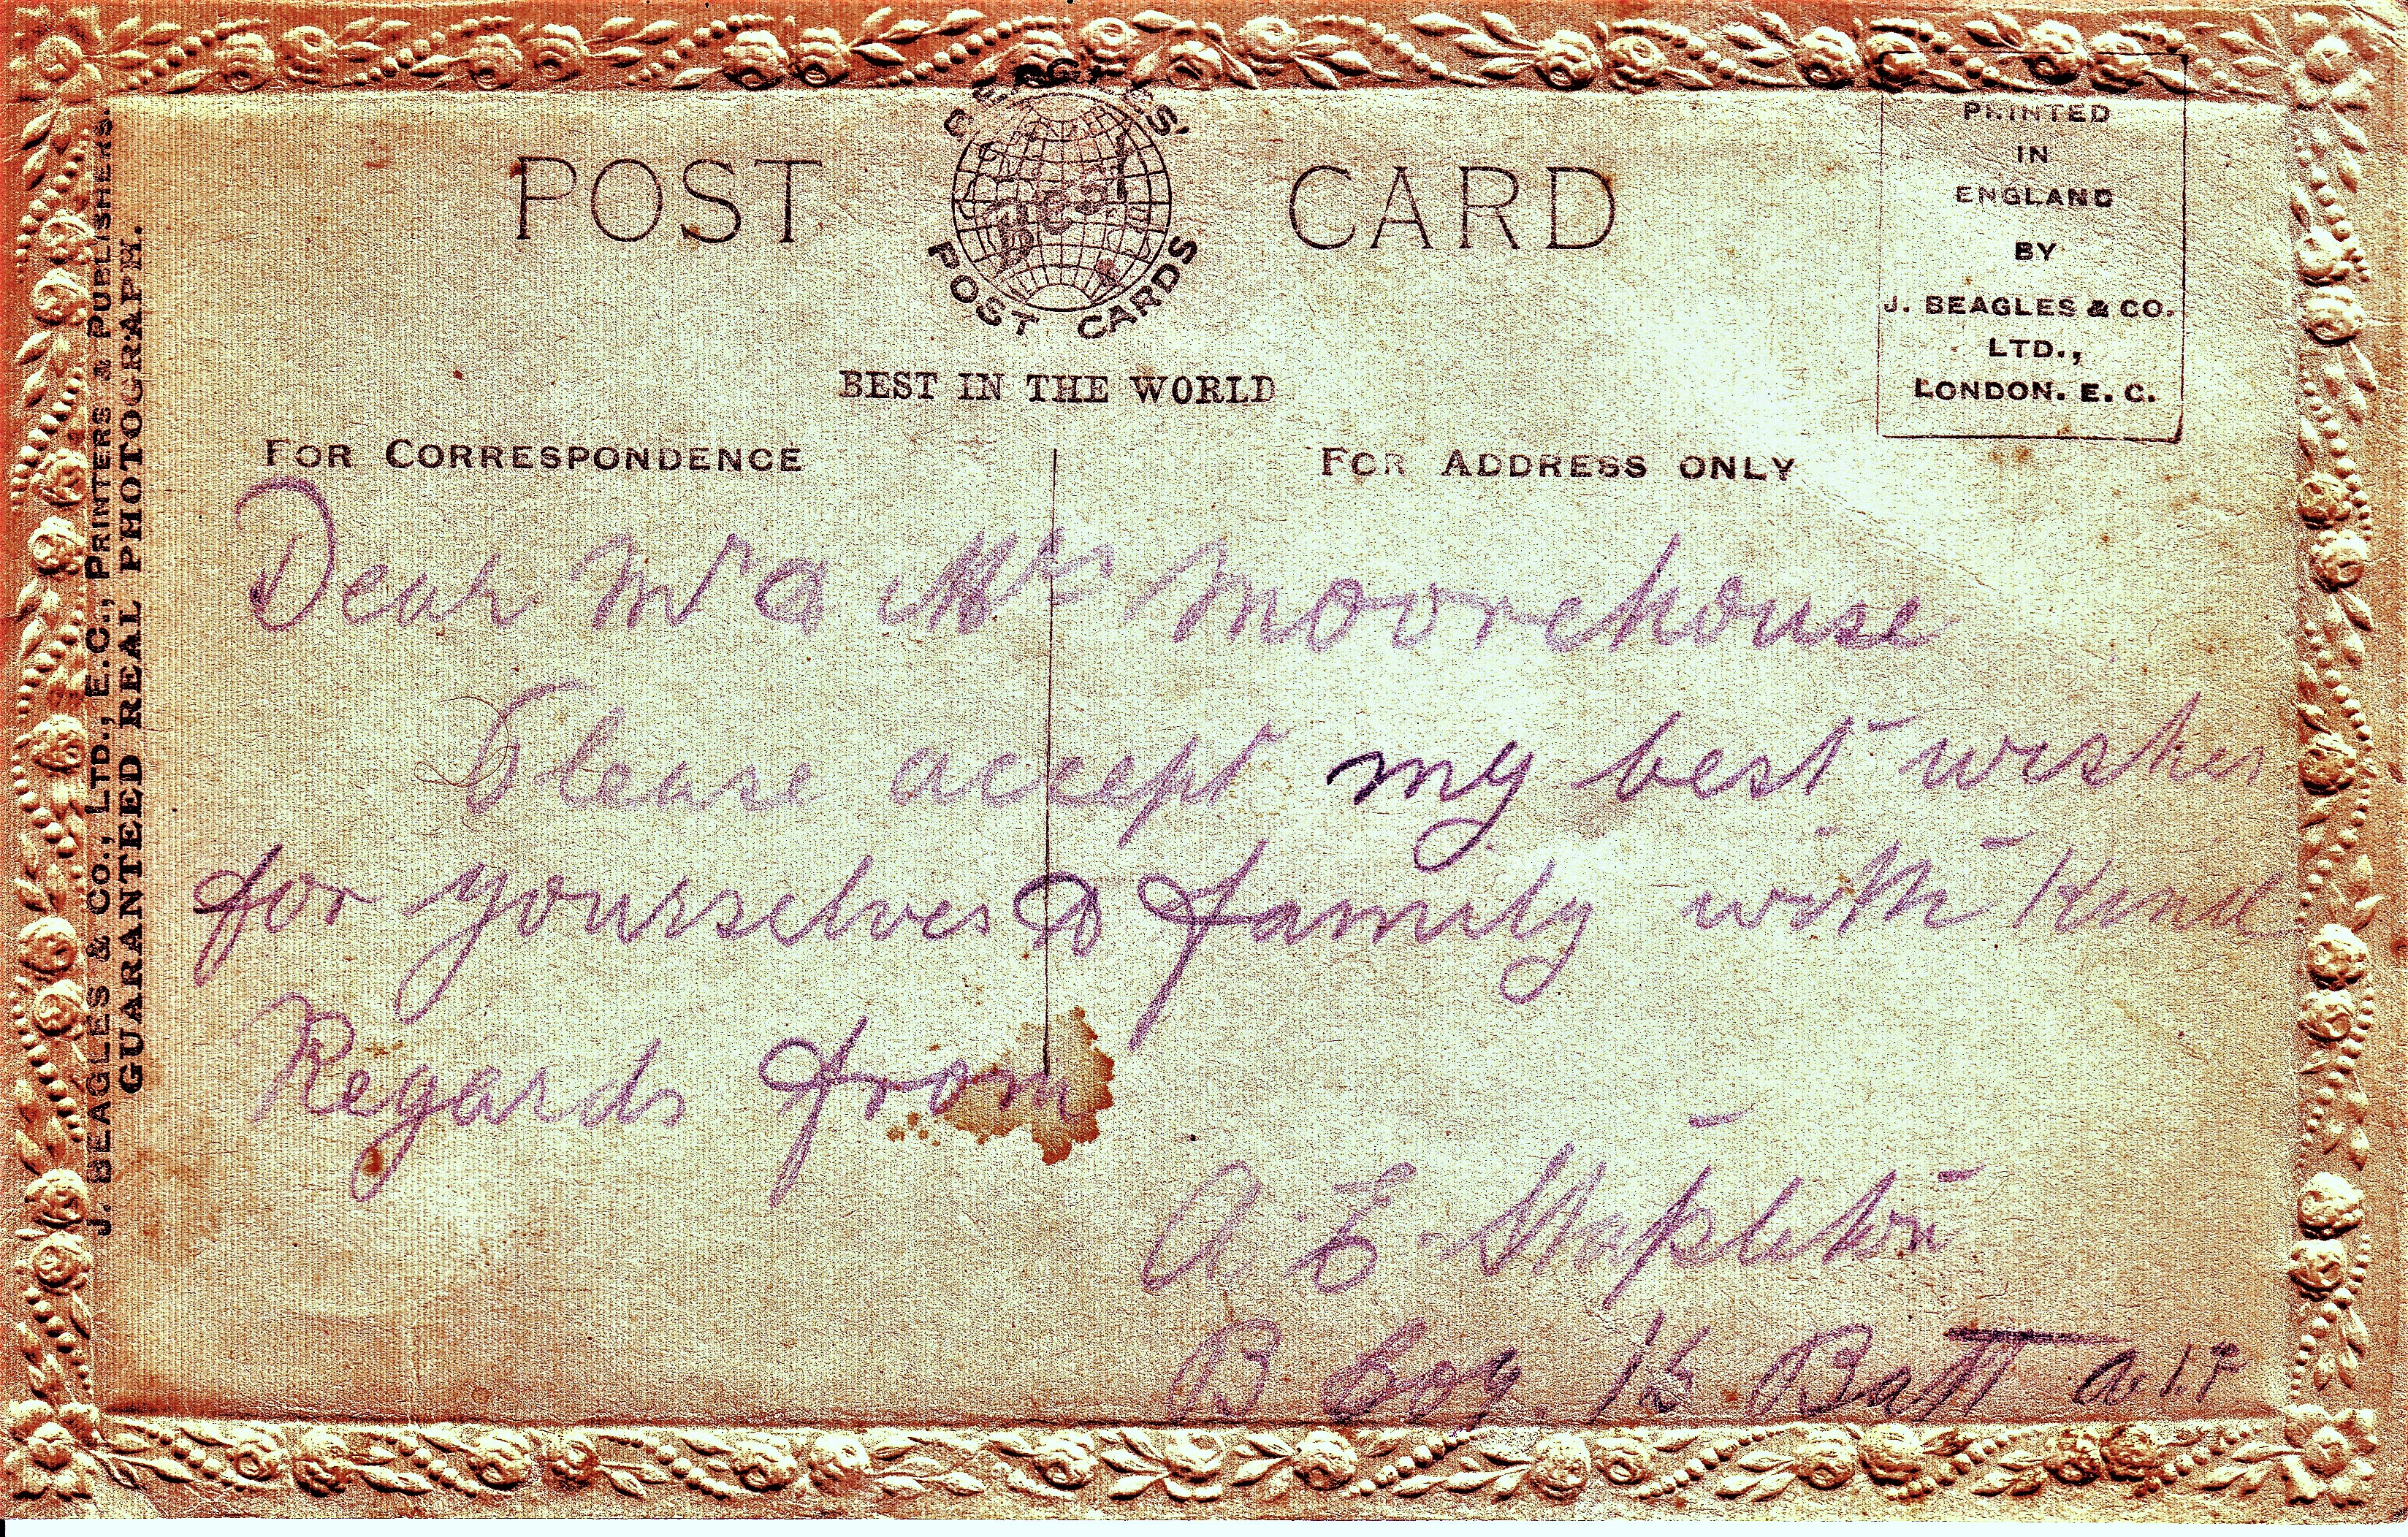 BEAGLES'
POST CARD
Best
POST CARDS
BEST IN THE WORLD
PRINTED
IN
ENGLAND
BY
J. BEAGLES & CO.
LTD.,
LONDON. E. C.
J. BEAGLES & CO., LTD., E.C., PRINTERS & PUBLISHERS.
GUARANTEED REAL PHOTOGRAPH.
FOR CORRESPONDENCE
FOR ADDRESS ONLY
Dear Mr & Mrs Moorehouse
Please accept my best wishes
for yourselves & family with Kind
Regards from
A. E. Stapleton
B Coy. Batt